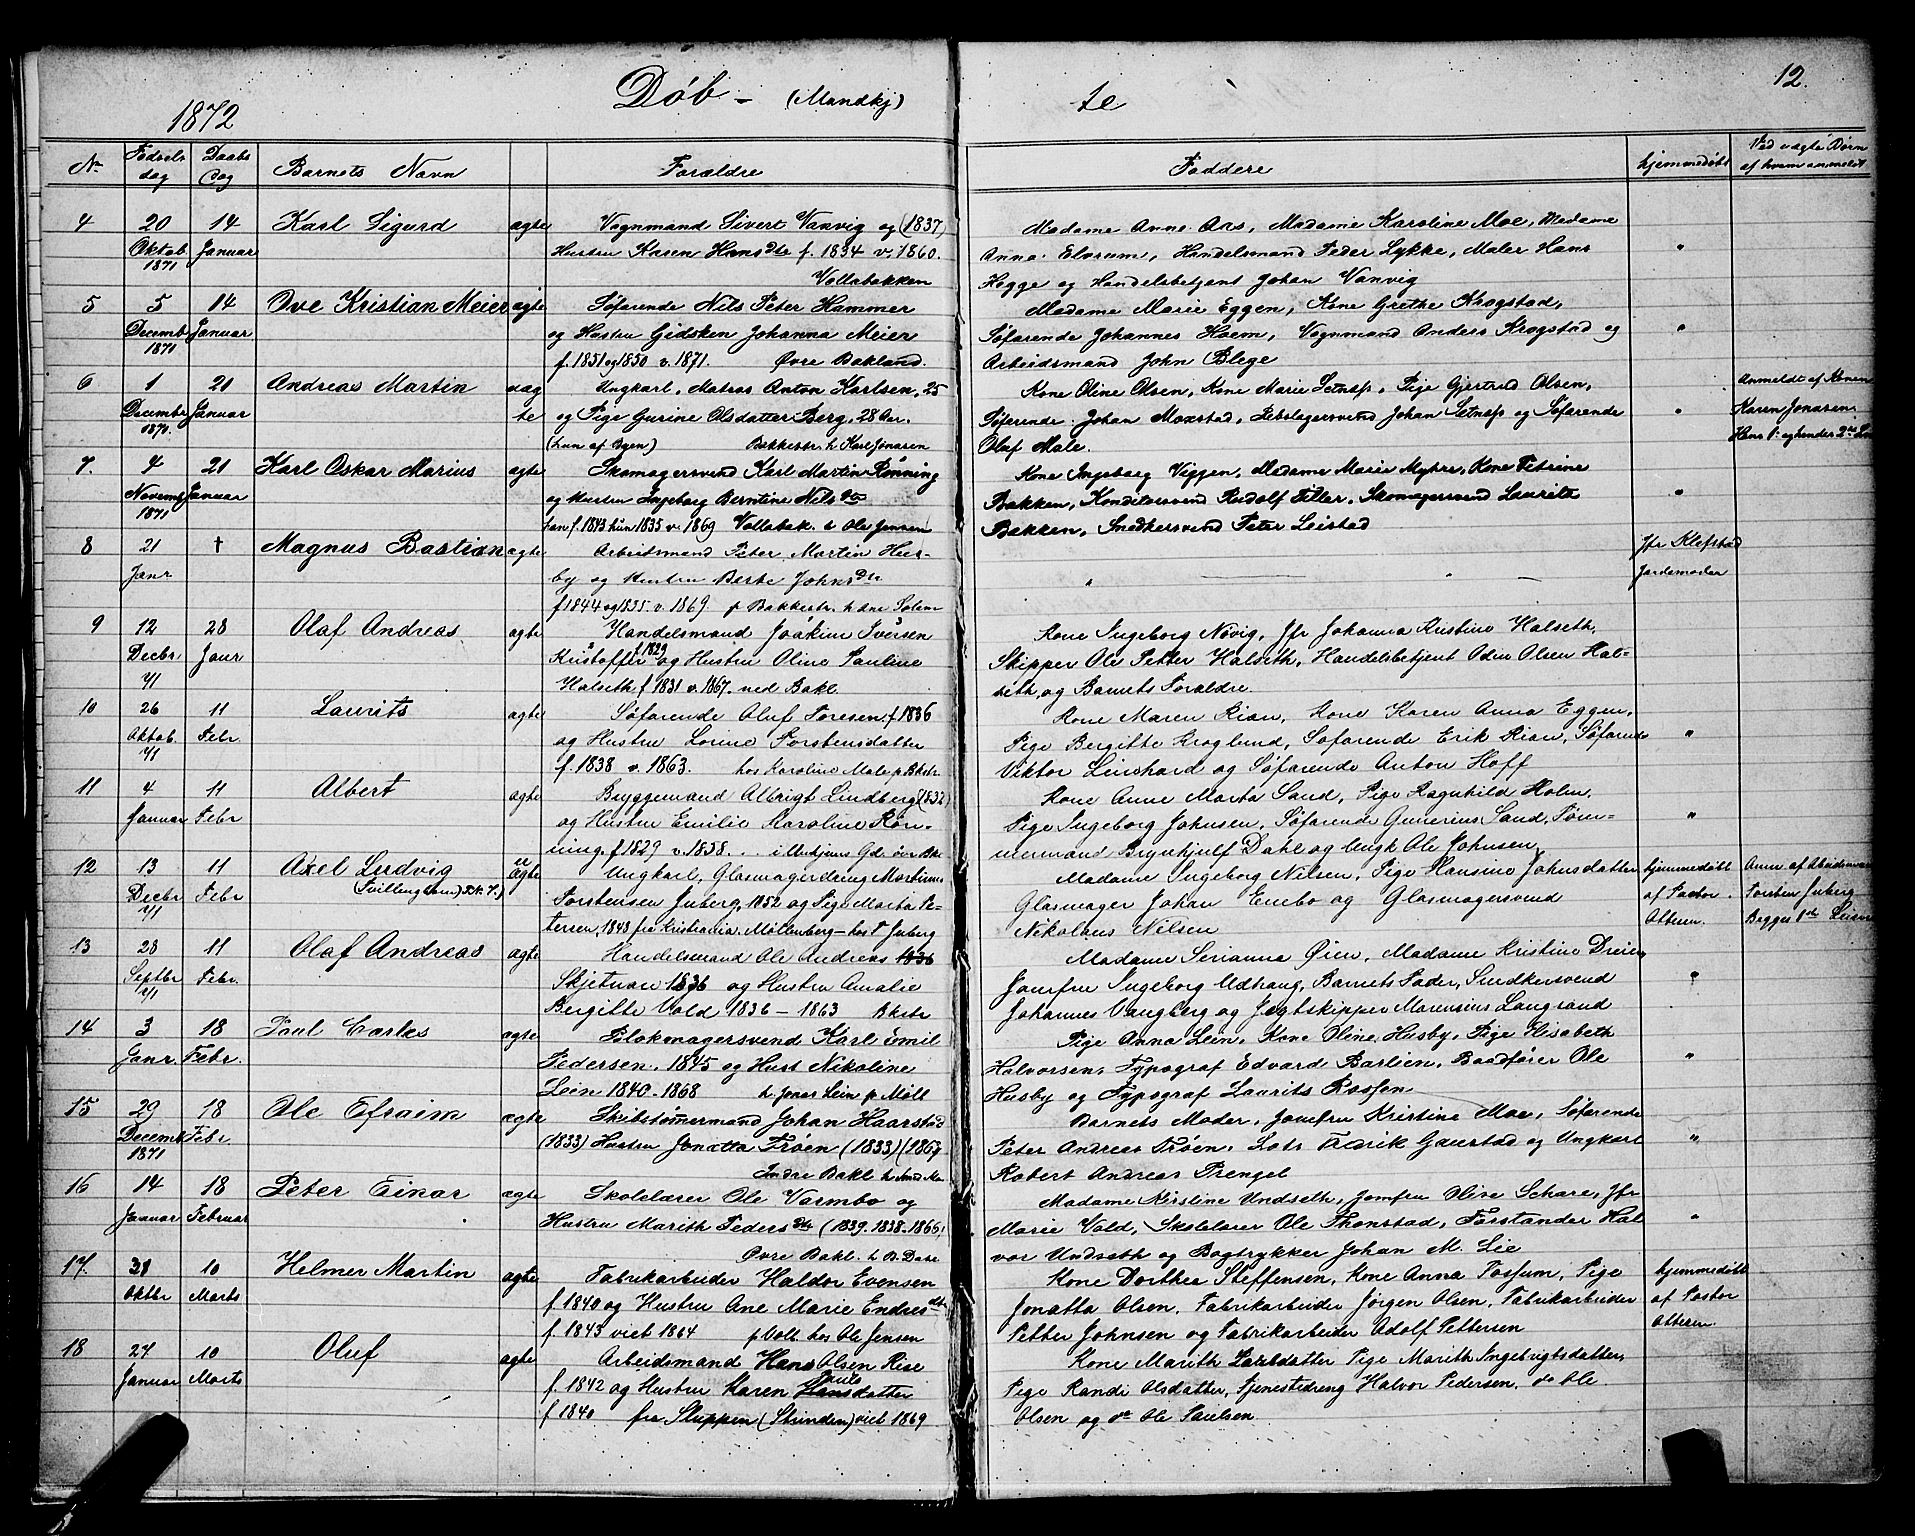 12.
1872 Døb – (Mandkj) te
No Fødsels dag Daabs Dag Barnets Navn Forældre Faddere hjemmedøbt Ved uægte Børn af hvem anmeldt
4 20 14 Karl Sigurd ægte Vognmand Sivert Vanvig og (1837
Oktob. Januar Hustru Karen Hansdtr f. 1834 v. 1860.
1871 Vollabakken
Madame Anne Aas, Madame Karoline Moe, Madame
Anna Elvrum, Handelsmand Peder Lykke, Maler Hans "
Hegge og Handelsbetjent Johan Vanvig
5 5 14 Ove Kristian Meier ægte Søfarende Nils Peter Hammer
Decemb Januar og Hustru Gidsken Johanna Meier
1871 f. 1851 og 1850 v. 1871. Øvre Bakland.
Madame Marie Eggen, Kone Grethe Krogstad,
Søfarende Johannes Hoem, Vognmand Anders Krogstad og "
Arbeidsmand John Blege
6 1 21 Andreas Martin uæg Ungkarl, Matros Anton Karlsen, 25
Decembr Januar te og Pige Gurine Olsdatter Berg, 28 Aar.
1871. (hun af Byen) Bakkestr. h Karl Jonasen
Kone Oline Olsen, Kone Marie Setnæs, Pige Gjertrud Olsen, Anmeldt af Konen
Søfarende Johan Moxstad, Johan Setnæs og Søfarende " Karen Jonasen
Oluf Male. Hans 1te og hendes 2de
7. 4 21 Karl Oskar Marius ægte Skomagersvend Karl Martin Rønning
Novemb Januar og Hustru Ingeborg Berntine Nilsdtr
1871 han f. 1843 hun 1835 v. 1869 Vollabak. h Ole Jensen
Kone Ingeborg Viggen, Madame Marie Myhre, Kone Petrine
Bakken, Konditorsvend Rudolf Tiller, Skomagersvend Laurits "
Bakken, Snedkersvend Peter Leistad
8 21 † Magnus Bastian ægte Arbeidsmand Peter Martin Hus- Jfr Klefstad
Janr by og Hustru Berte Johnsdtr " " Jordemoder
f 1844 og 1835. v. 1869. p Bakkestr. h Ane Solem
9 12 28 Olaf Andreas ægte Handelsmand Joakim Iversen
Decbr Janr Kristoffer f. 1829 og Hustru Oline Pauline
71 Halseth f 1831 v. 1867. ned Bakl.
Kone Ingeborg Nøvig, Jfr Johanna Kristine Halseth,
Skipper Ole Petter Halseth, Handelsbetjent Odin Olsen Hal-
seth, og Barnets Forældre.
10 26 11 Laurits ægte Søfarende Oluf Toresen f 1836
Oktob. Febr. og Hustru Lorine Torstensdatter
71 f. 1838 v. 1863. hos Karoline Male p Bkstr.
Kone Maren Rian, Kone Karen Anna Eggen,
Pige Bergitte Kroglund, Søfarende Erik Rian, Søfarende "
Viktor Linchard og Søfarende Anton Hoff
11 4 11 Albert ægte Bryggemand Albrigt Lindberg (1832)
Januar Febr og Hustru Emilie Karoline Røn-
ning. f 1829 v. 1858.
Kone Anne Marta Sand, Pige Ragnhild Holm,
Pige Ingeborg Johnsen, Søfarende Gunerius Sand, Tøm- "
mermand Brynhjulf Dahl og Ungk Ole Johnsen
12 13 11 Axel Ludvig uægte Ungkarl, Glasmagerdreng Martinus
Decbr Febr (Tvilling
71 Torstensen Juberg, 1852 og Pige Marta Pe-
tersen, 1848 fra Kristiania. Møllenberg – hos T Juberg
Madame Ingeborg Nilsen, Pige Hansine Johnsdatter hjemmedøbt Anm af Arbeidsmand
Glasmager Johan Enebo og Glasmagersvend af Pastor Torsten Juberg
Nikolaus Nilsen Begges 1ste Leierm
13 28 11 Olaf Andreas ægte Handelsmand Ole Andreas 1836
Septbr Febr. Skjetnan 1836 og Hustru Amalie
71 Bergitte Vold 1836 – 1863 Bkstr
Madame Serianna Øien, Madame Kristine Dreier,
Jomfru Ingeborg Udhaug, Barnets Fader, Snedkersvend "
Johannes Vangberg og Jægtskipper Marensius Langsand
14 3 18 Paul Carlos ægte Blokmagersvend Karl Emil
Janr Febr. Pedersen. 1845 og Hust Nikoline
Lein 1840. 1868 h Jonas Lein p Møll
Pige Anna Lein, Kone Oline Husby, Pige Elisabeth
Halvorsen, Typograf Edvard Bartien, Baadfører Ole "
Husby og Typograf Laurits Rossen
15 29 18 Ole Efraim ægte Skibstømmermand Johan Haarstad
Decemb Febr (1833) Hustru Jonetta Trøen (1833) (1867
1871 Indre Bakl
Barnets Moder, Jomfru Kristine Moe, Søfarende
Peter Andreas Trøen, Lods Fredrik Gaustad og Ungkarl "
Robert Andreas Prengel
16 14 18 Peter Einar ægte Skolelærer Ole Varmbo og
Januar Februar Hustru Marith Pedersdtr (1839. 1838. 1866)
Øvre Bakl.
Madame Kirstine Undseth, Jomfru Olive Schare, Jfr
Marie Vold, Skolelærer Ole Thonstad, Forstander Hal- "
vor Undseth og Bogtrykker Johan M. Lie
17. 31 10 Helmer Martin ægte Fabrikarbeider Haldor Evensen
Oktbr Marts f. 1840 og Hustru Ane Marie Endresdtr
f. 1843 viet 1864 p Voll hos Ole Jensen
Kone Dorthea Steffensen, Kone Anna Fossum, Pige hjemmedøbt
Jonetta Olsen, Fabrikarbeider Jørgen Olsen, Fabrikarbeider af Pastor
Petter Johnsen og Fabrikarbeider Adolf Pettersen
18 27 10 Oluf ægte Arbeidsmand Hans Olsen Rise
Januar Marts f. 1842 og Hustru Karen
f 1840 fra Sluppen (Strinden) viet 1869
Kone Marith Larsdatter Pige Marith Ingebrigtsdatter,
Pige Randi Olsdatter, Tjenestedreng Halvor Pedersen, do Ole
Olsen og do Ole Paulsen